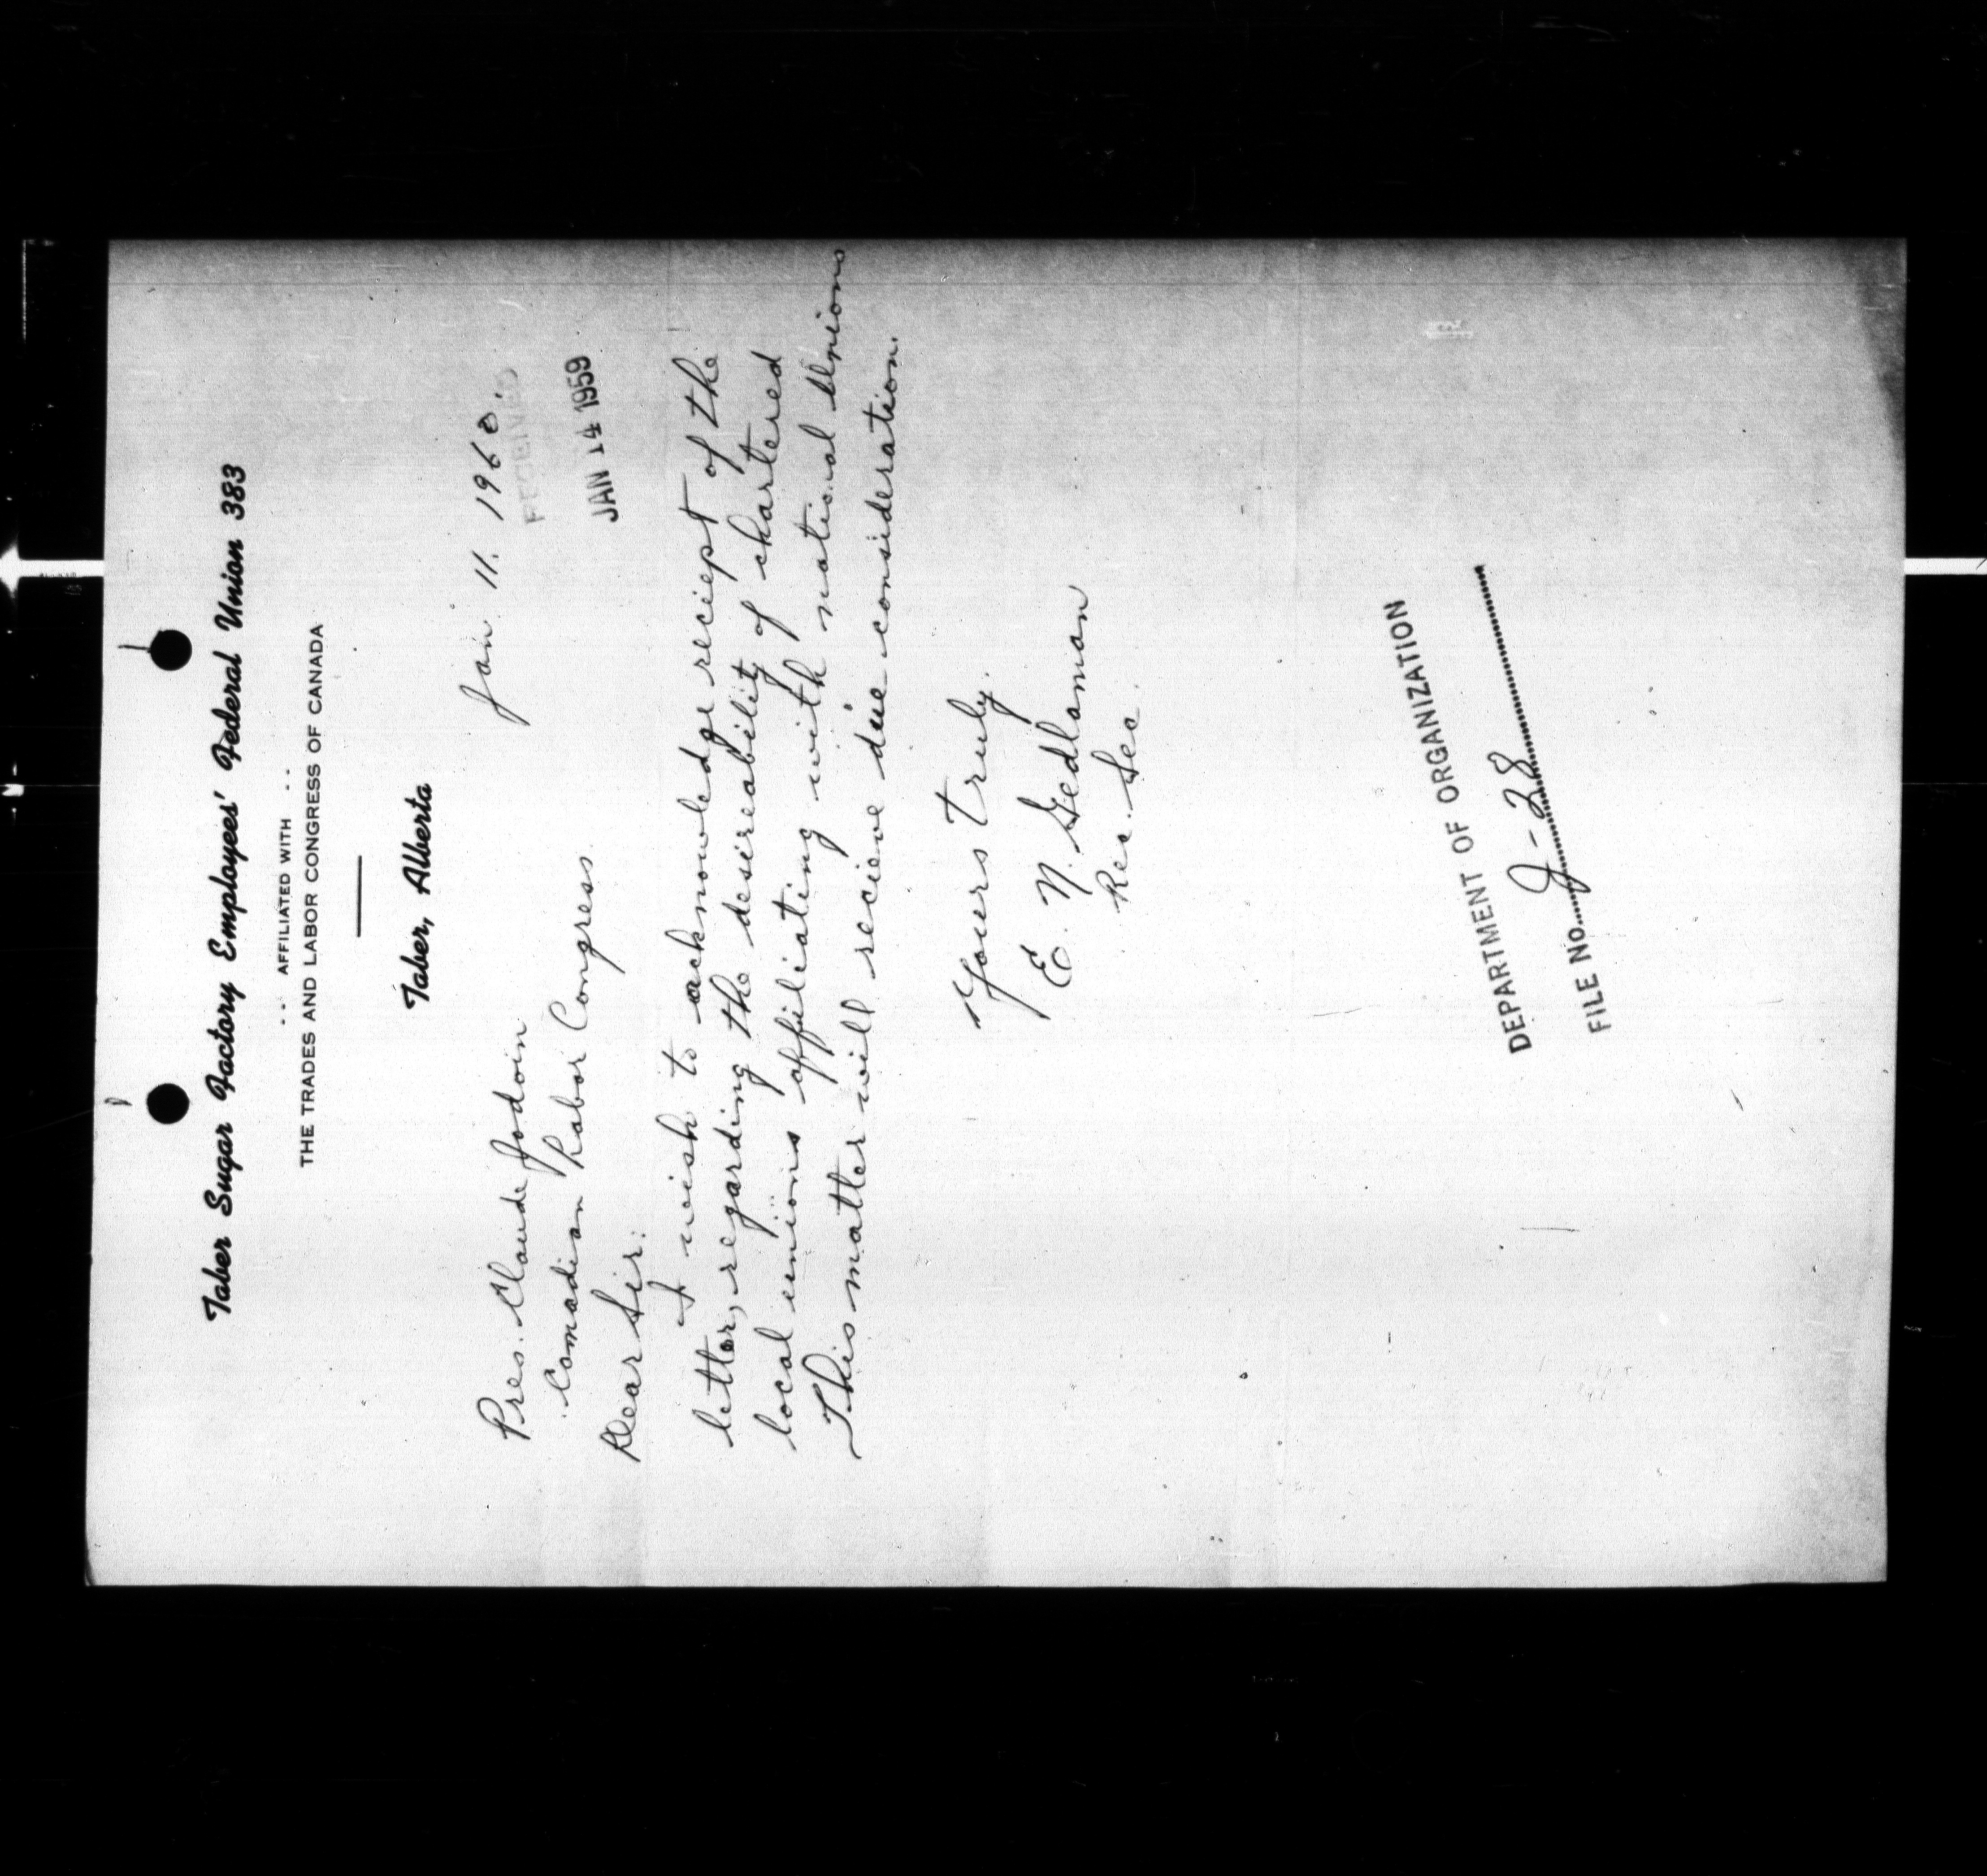 Taber Sugar Factory Employees' Federal Union 383
.. AFFILIATED WITH ..
THE TRADES AND LABOR CONGRESS OF CANADA
Taber, Alberta
Jan. 11. 1960.
RECEIVED
JAN 14 1959
Pres. Claude Jodoin
Canadian Labor Congress.
Dear Sir:
I wish to acknowledge reciept of the
letter, regarding the desireability of chartered
local unions affiliating with national Unions
This matter will recieve due consideration.
Yours truly.
E. N. Sedlaman
Rec. Sec.
DEPARTMENT OF ORGANIZATION
FILE NO. J-28